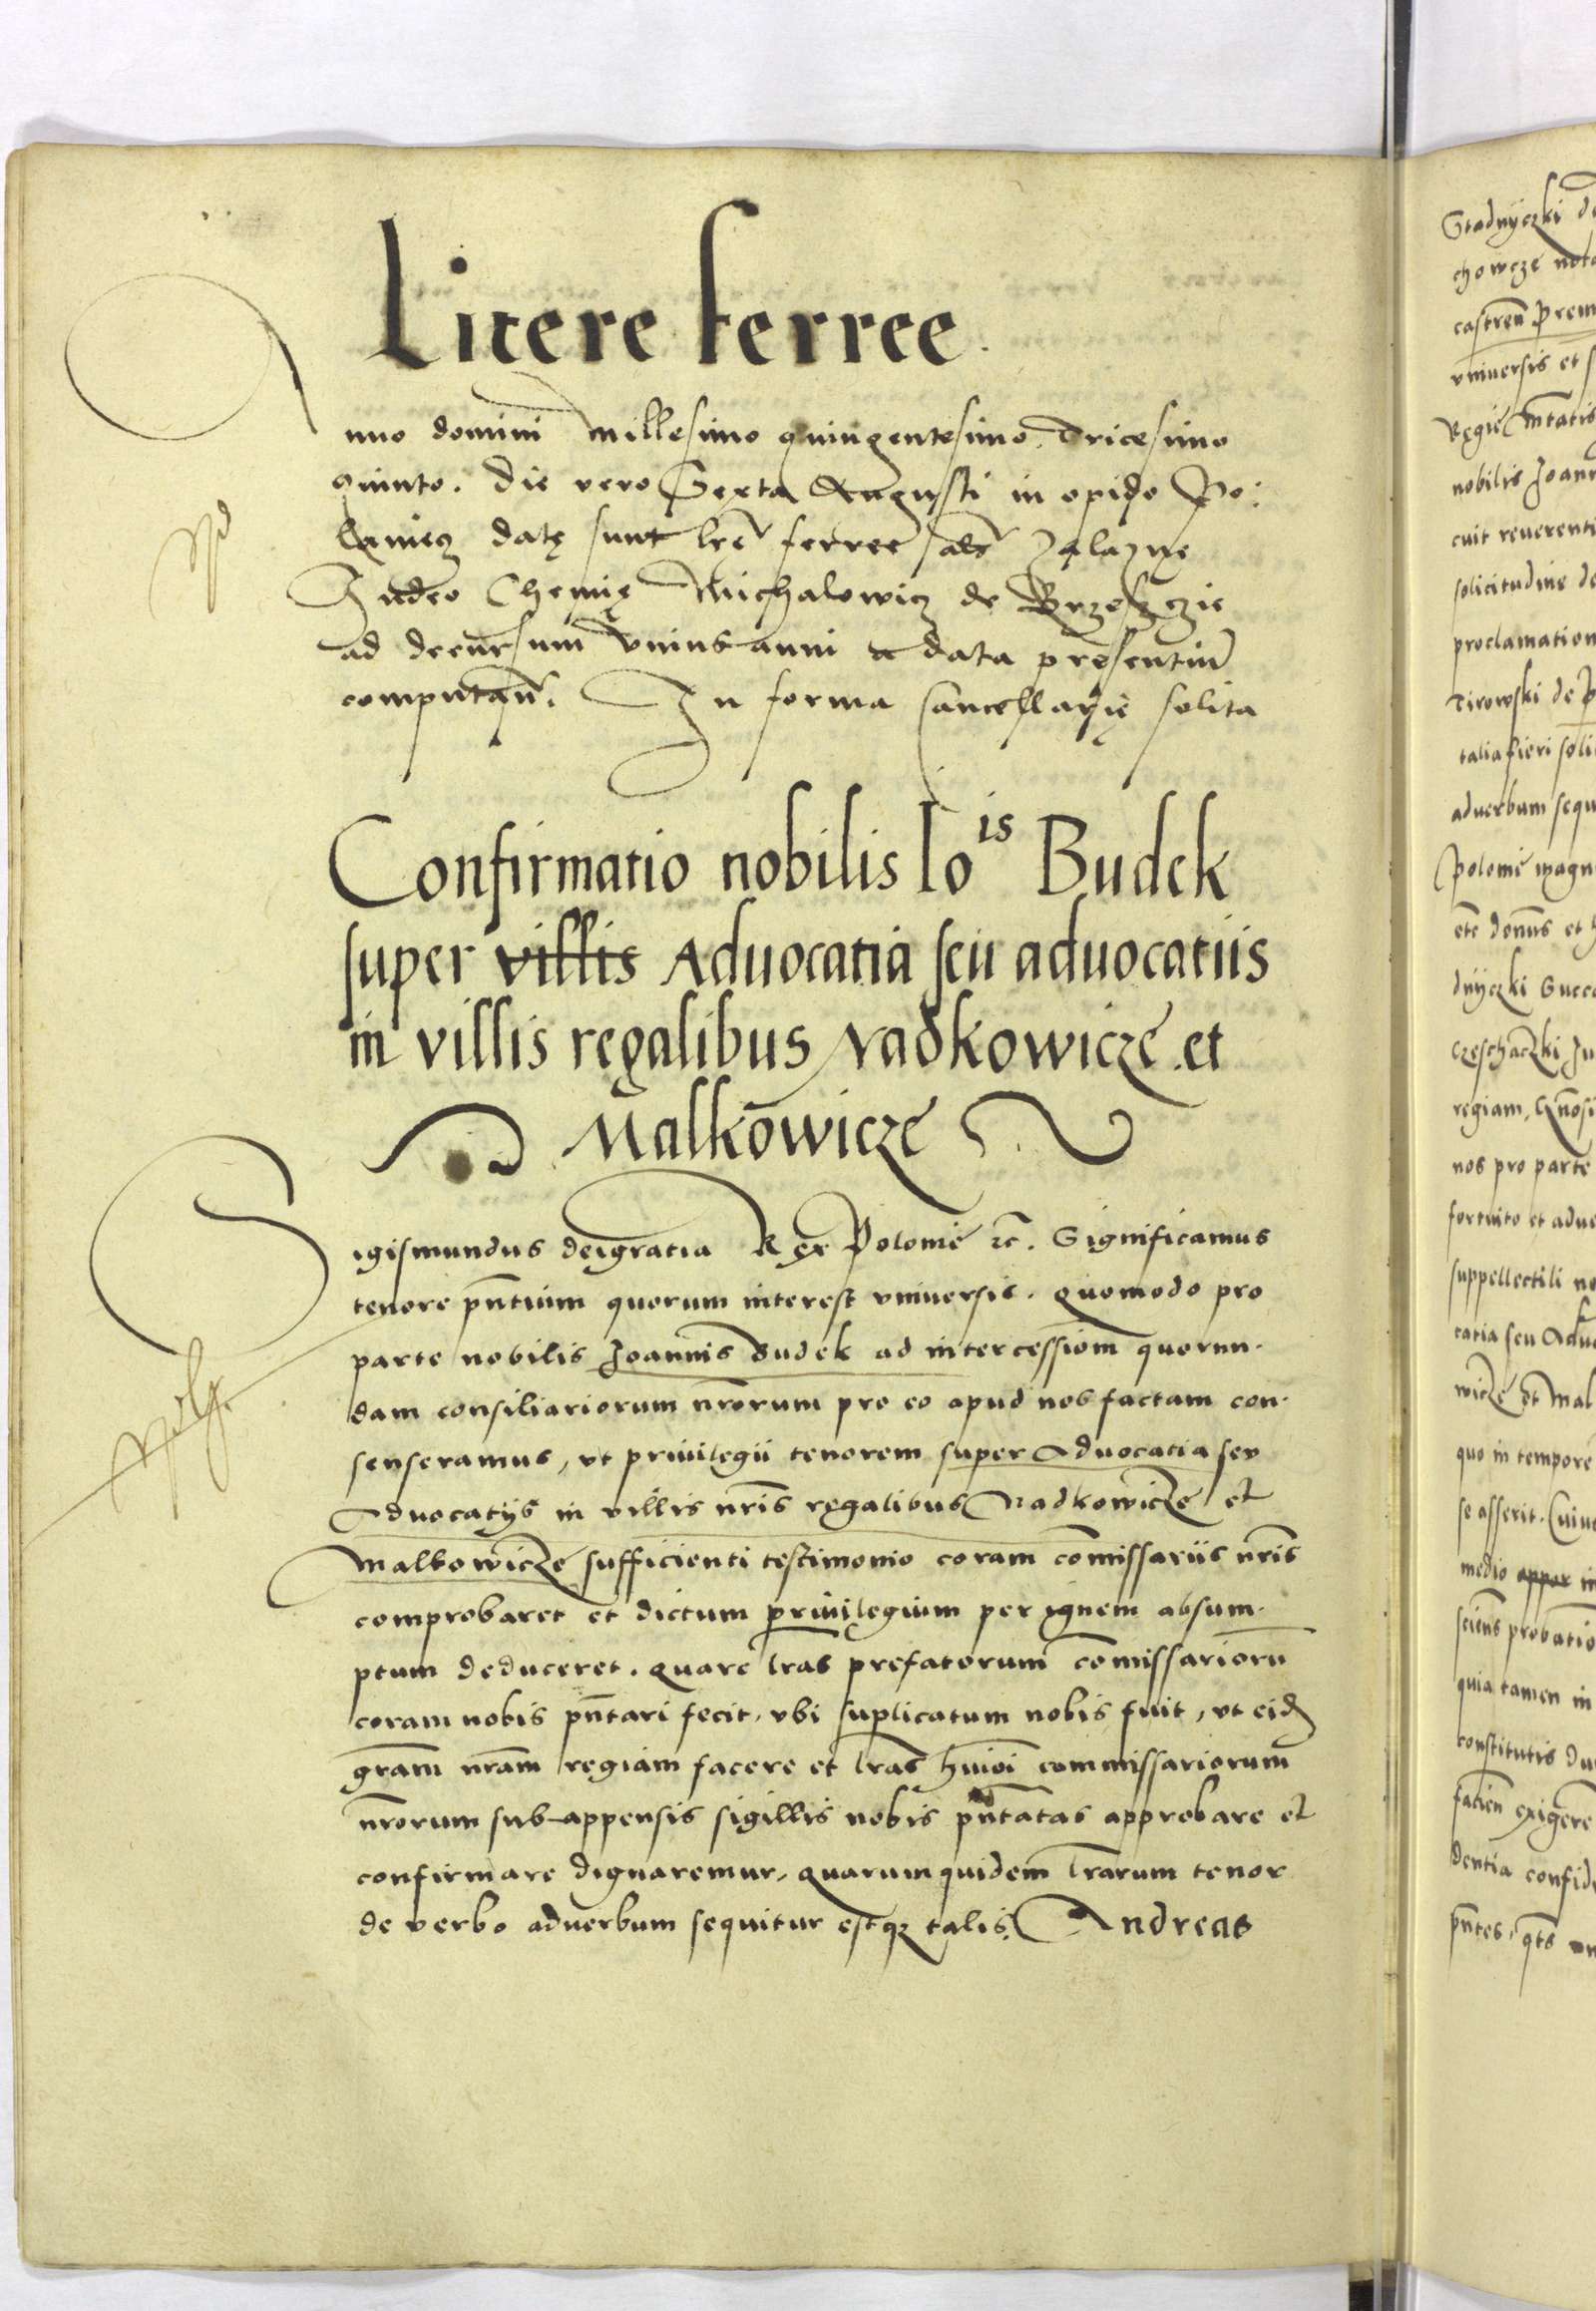 Litere ferree.
Anno domini Millesimo quingentesimo Tricesimo
quinto. Die vero Sexta Augusti in opido Po:
laniecz datę sunt lrẽ ferreẽ als zalaznę
Judeo Chemię Michalowicz de Brzesczie
ad decursum vnius anni a data presentiũ
computañ. In forma Cancellarię solita
Confirmatio nobilis Io^is Budek
super villis Aduocatia seu aduocatiis
in villis regalibus Nadkowicze et
Malkowicze
Sigismundus dei gratia Rex Polonie rc̃. Significamus
tenore pñtium quorum interest vniuersis. quomodo pro
parte nobilis Joannis Budek ad intercessiom̃ quorun-
dam consiliariorum nr̃orum pro eo apud nos factam con-
senseramus, vt priuilegii tenorem super Aduocatia seu
Aduocatijs in villis nr̃is regalibus Nadkowicze et
Malkowicze sufficienti testimonio coram com̃issariis nr̃is
comprobaret et dictum priuilegium per ignem absum-
ptum deduceret. quare lr̃as prefatorum com̃issarioru
coram nobis pñtari fecit, vbi suplicatum nobis fuit, vt eid
gr̃am nr̃am regiam facere et lr̃as hmõi commissariorum
nr̃orum sub appensis sigillis nobis pñtatas approbare et
confirmare dignaremur, quarum quidem lr̃arum tenor
de verbo aduerbum sequitur estqz talis. Andreas
Stadnyczki de
chowcze
castreñ prem
vniuersis et s
Regie
nobilis Joann
cuit reuerenti
solicitudine de
proclamation
Tirowski de P
talia fieri soli
aduerbum sequ
Polonie magn
et h
dnyczki Succa
Ju
regiam,
nos pro parte
fortuito et adue
suppellectili no
catia seu Adu
wicze et Mal
quo in tempore
se asserit. Cuiu
medio appor in
probatio
quia tamen in
constitutis du
exigere
dentia confide
pñtes,